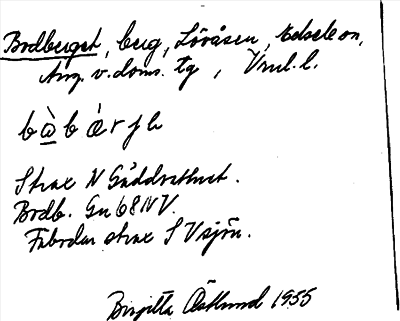 Bodberget, berg, Lövåsen, Edsele sn,
Ång. v. doms. tg, Vnl. l.
bàbærjə
Strax N Gäddvattnet.
Bodb. Gu 68 NV.
Fäbodar strax S Vsjön.
Birgitta Östlund 1955